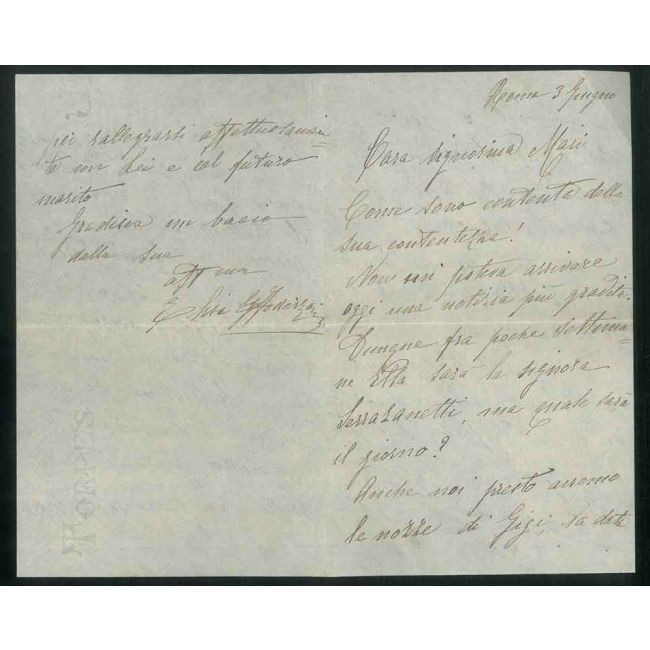 Roma 3 Giugno
Cara Signorina Mari
Come sono contenta della
sua contentezza!
Non mi poteva arrivare
oggi una notizia più gradita.
Dunque fra poche settima-
ne Ella sarà la signora
Serrazanetti, ma quale sarà
il giorno?
Anche noi presto avremo
le nozze di Gigi, la data
per rallegrarsi affettuosamen-
te con Lei e col futuro
marito
Gradisca un bacio
dalla sua
aff ma
Elisa Federzoni
TORRES